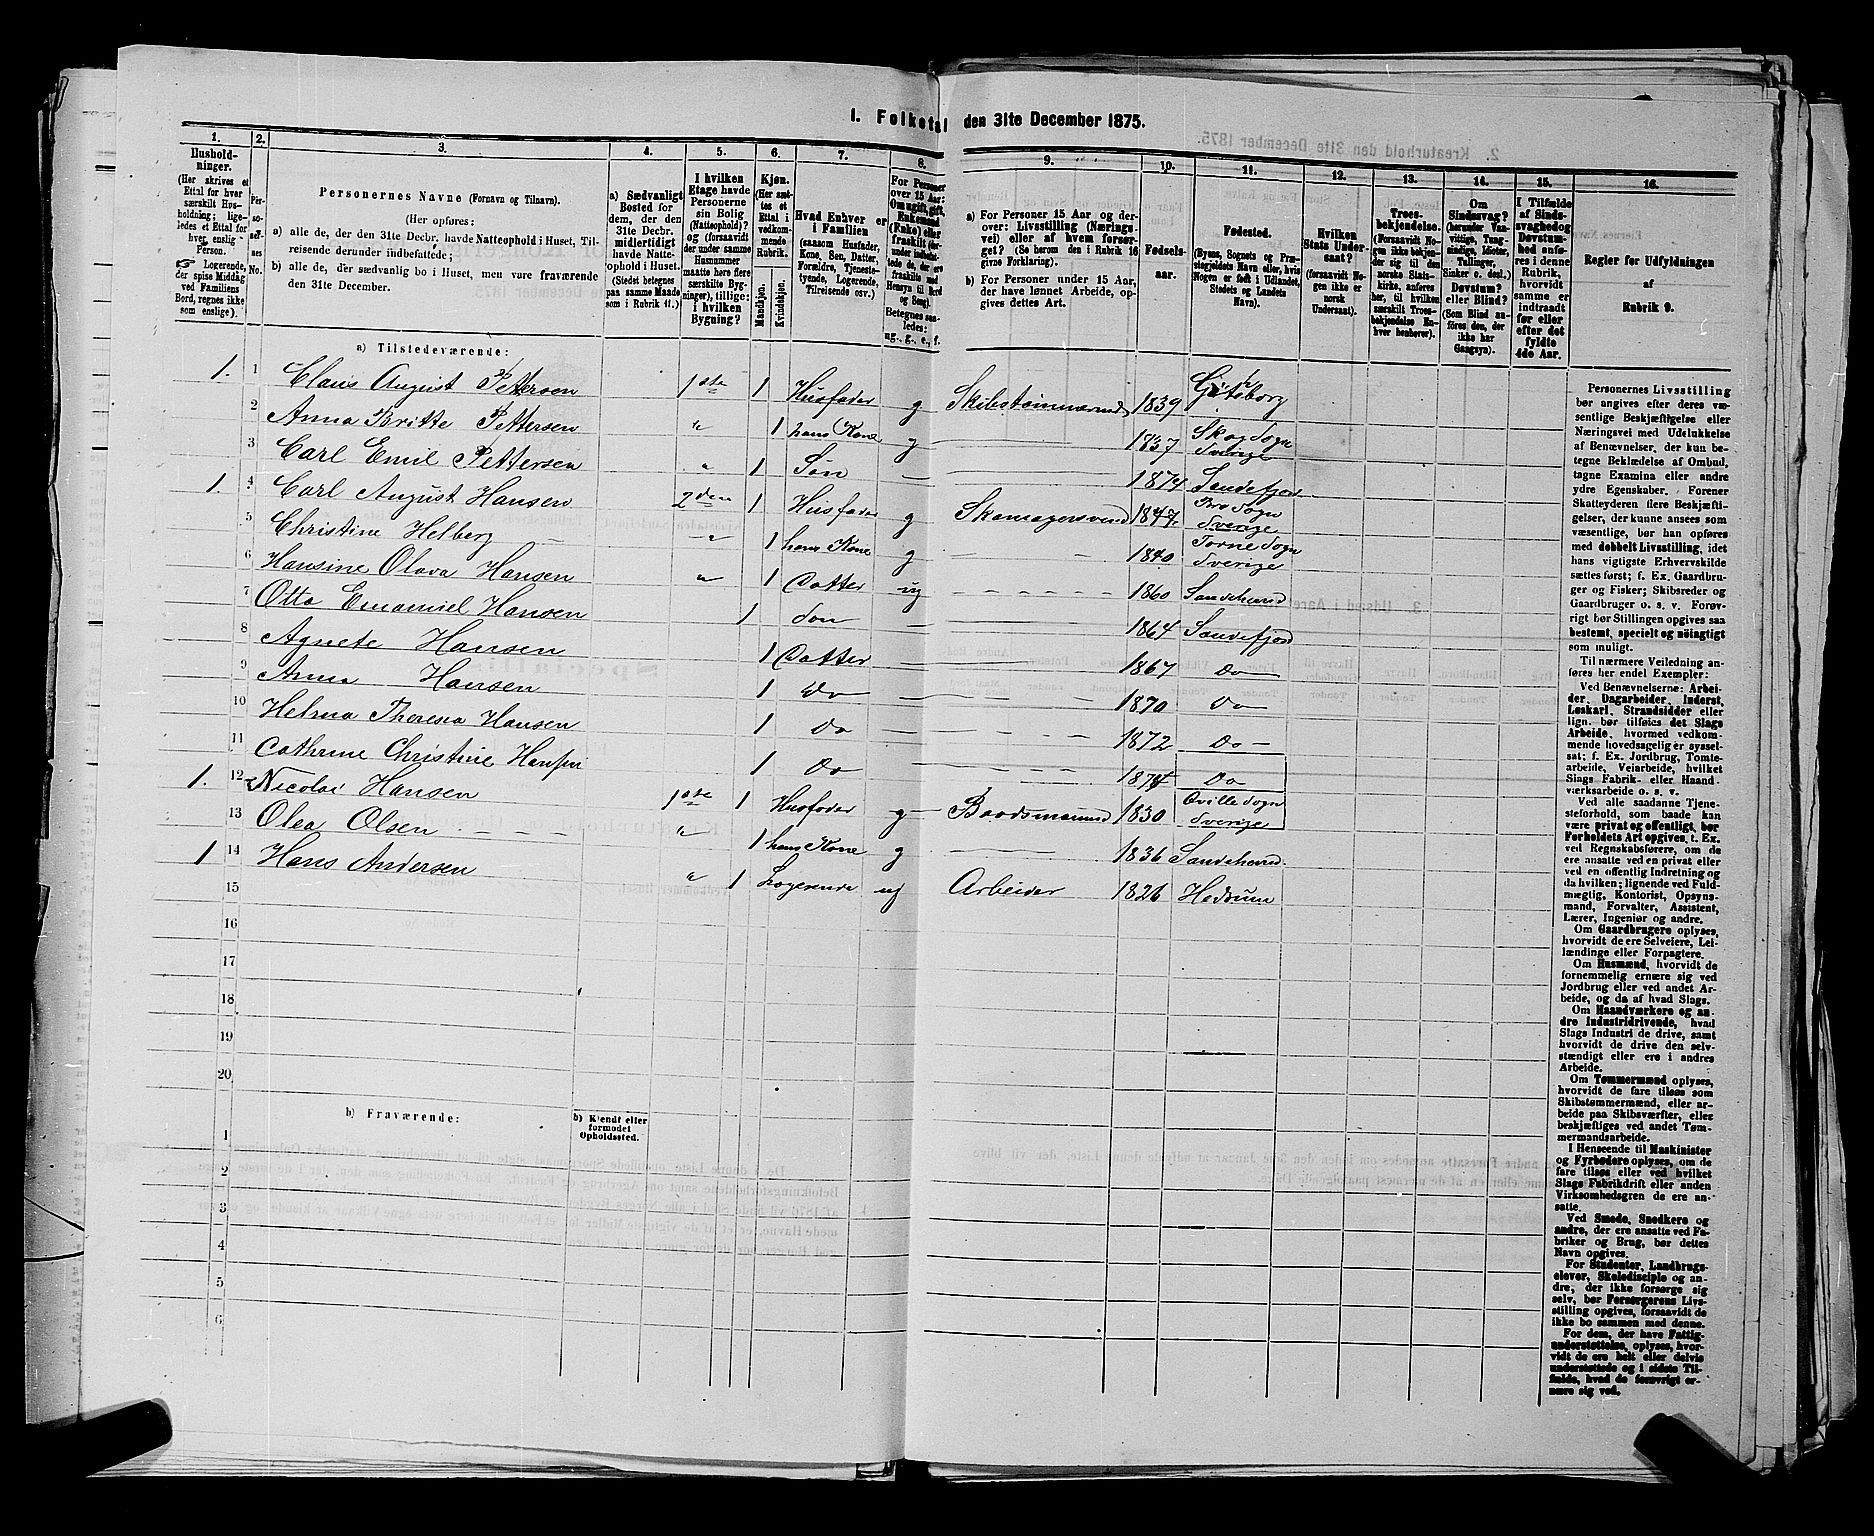 1. Folketal den 31te December 1875.
1. 2. 3. 4. 5. 6. 7. 8. 9. 10. 11. 12. 13. 14. 15. 16.
Husholdninger.
(Her skrives et
Ettal for hver
særskilt Husholdning;
ligeledes et Ettal for
hver enslig
Person.
☞ Logerende,
der spise Middag
ved Familiens
Bord, regnes ikke
som enslige).
Personernes No.
Personernes Navne (Fornavn og Tilnavn).
(Her opføres:
a) alle de, der den 31te Decbr. havde Natteophold i Huset, Tilreisende
derunder indbefattede;
b) alle de, der sædvanlig bo i Huset, men vare fraværende
den 31te December.
a) Sædvanligt
Bosted for
dem, der den
31te Decbr.
midlertidigt
havde Natteophold
i Huset.
(Stedet betegnes
paa samme Maade
som i Rubrik 11.)
I hvilken
Etage havde
Personerne
sin Bolig
(Natteophold)?
og (forsaavidt
der under samme
Husnummer
maatte høre flere
særskilte Bygninger),
tillige:
i hvilken
Bygning?
Kjøn.
(Her sættes
et
Ettal i
vedkommende
Rubrik.
Mandkjøn.
Kvindekjøn.
Hvad Enhver er
i Familien
(saasom Husfader,
Kone, Søn, Datter,
Forældre, Tjenestetyende,
Logerende,
Tilreisende osv.)
For Personer
over 15 Aar:
Om ugift, gift,
Enkemand
(Enke) eller
fraskilt
Betegnes saaledes:
ug., g., e., f.
a) For Personer 15 Aar og derover:
Livsstilling (Næringsvei)
eller af hvem forsørget?
(Se herom den i Rubrik 16
givne Forklaring).
b) For Personer under 15 Aar,
der have lønnet Arbeide, opgives
dettes Art.
Fødselsaar.
Fødested.
(Byens, Sognets og Præstegjeldets
Navn eller, hvis
Nogen er født i Udlandet,
Stedets og Landets
Navn).
Hvilken
Stats Undersaat?
(forsaavidt Nogen
ikke er
norsk
Undersaat).
Troesbekjendelse.
(Forsaavidt Nogen
ikke bekjender
sig til den
norske Statskirke,
anføres
her, til hvilken
særskilt Troesbekjendelse
Enhver
henhører).
Om
Sindssvag?
(herunder Vanvittige,
Tungsindige,
Idioter,
Tullinger,
Sinker o. desl.)
Døvstum?
eller Blind?
(Som Blind anføres
den, der
ikke har
Gangsyn).
I Tilfælde
af Sindssvaghed
og
Døvstumhed
anføres
i denne
Rubrik,
hvorvidt
samme er
indtraadt
før eller
efter det
fyldte
4de Aar.
Regler for Udfyldningen
af
Rubrik 9.
a) Tilstedeværende:
1. 1 Claus August Pettersen 1ste 1 Husfader g Skibstømmermand 1839 Gøteborg
2 Anna Britte Pettersen " 1 hans Kone g 1837 Skar Sogn Sverige
3 Carl Emil Pettersen " 1 Søn 1874 Sandefjord
1. 4 Carl August Hansen 2den 1 Husfader g Skomagersvend 1847 Bro Sogn Sverige
5 Christine Helberg " 1 hans Kone g 1840 Torne Sogn Sverige
6 Hansine Olava Hansen " 1 Datter ug 1860 Sandeherred
7 Otto Emanuel Hansen 1 Søn 1864 Sandefjord
8 Agnete Hansen 1 Datter 1867 Do
9 Anna Hansen 1 Do 1870 Do
10 Helma Theresia Hansen 1 Do 1872 Do
11 Cathrine Christine Hansen 1 Do 1874 Do
1. 12 Nicolai Hansen 1ste 1 Husfader g Baadsmand 1830 Qville Sogn Sverige
13 Olea Olsen " 1 hans Kone g 1836 Sandeherred
1 14 Hans Andersen " 1 Logerende ug Arbeider 1826 Hedrum
15
16
17
18
19
20
b) Fraværende:
b) Kjendt eller
formodet
Opholdssted.
1
2
3
4
5
6
Personernes Livsstilling
bør angives efter deres væsentlige
Beskjæftigelse eller
Næringsvei med Udelukkelse
af Benævnelser, der kun betegne
Beklædelse af Ombud,
tagne Examina eller andre
ydre Egenskaber. Forener
Skatteyderen flere Beskjæftigelser,
der kunne ansees som
væsentlige, bør han opføres
med dobbelt Livsstilling, idet
hans vigtigste Erhvervskilde
sættes først; f. Ex. Gaardbruger
og Fisker; Skibsreder og
Gaardbruger o. s. v. Forøvrigt
bør Stillingen opgives saa
bestemt, specielt og nøiagtigt
som muligt.
Til nærmere Veiledning anføres
her endel Exempler:
Ved Benævnelserne: Arbeider,
Dagarbeider, Inderst,
Løskarl, Strandsidder eller
lign. bør tilføies det Slags
Arbeide, hvormed vedkommende
hovedsagelig er sysselsat;
f. Ex. Jordbrug, Tomtearbeide,
Veiarbeide, hvilket
Slags Fabrik- eller Haandværksarbeide
o. s. v.
Ved alle saadanne Tjenestestillinger,
som baade kan
være privat og offentligt, bør
Forholdets Art opgives, t. Ex.
ved Regnskabsførere, om de
ere ansatte ved en privat eller
ved en offentlig Indretning og
da hvilken; lignende ved Fuldmægtig,
Kontorist, Opsynsmand,
Forvalter, Assistent,
Lærer, Ingeniør og andre.
Om Gaardbrugere oplyses,
hvorvidt de ere Selveiere, Leilændinge
eller Forpagtere.
Om Husmænd, hvorvidt de
fornemmelig ernære sig ved
Jordbrug eller ved andet Arbeide,
og da af hvad Slags.
Om Haandværkere og andre
Industridrivende, hvad
Slags Industri de drive, samt
hvorvidt de drive den selvstændigt
eller ere i andres
Arbeide.
Om Tømmermænd oplyses,
hvorvidt de fare tilsøs som
Skibstømmermænd, eller arbeide
paa Skibsværfter, eller
beskjæftiges ved andet Tømmermandsarbeide.
I Henseende til Maskinister
og Fyrbødere oplyses, om de
fare tilsøs eller ved hvilket
Slags Fabrikdrift eller anden
Virksomhedsgren de ere ansatte.
Ved Smede, Snedkere og
andre, der ere ansatte ved Fabriker
og Brug, bør dettes
Navn opgives.
For Studenter, Landbrugselever,
Skoledisciple og andre,
der ikke forsørge sig
selv, bør Forsørgerens Livsstilling
opgives, forsaavidt de
ikke bo sammen med denne.
For dem, der have Fattigunderstøttelse,
oplyses, hvorvidt
de ere helt eller delvis
understøttede og i sidste Tilfælde,
hvad de forøvrigt ernære
sig ved.